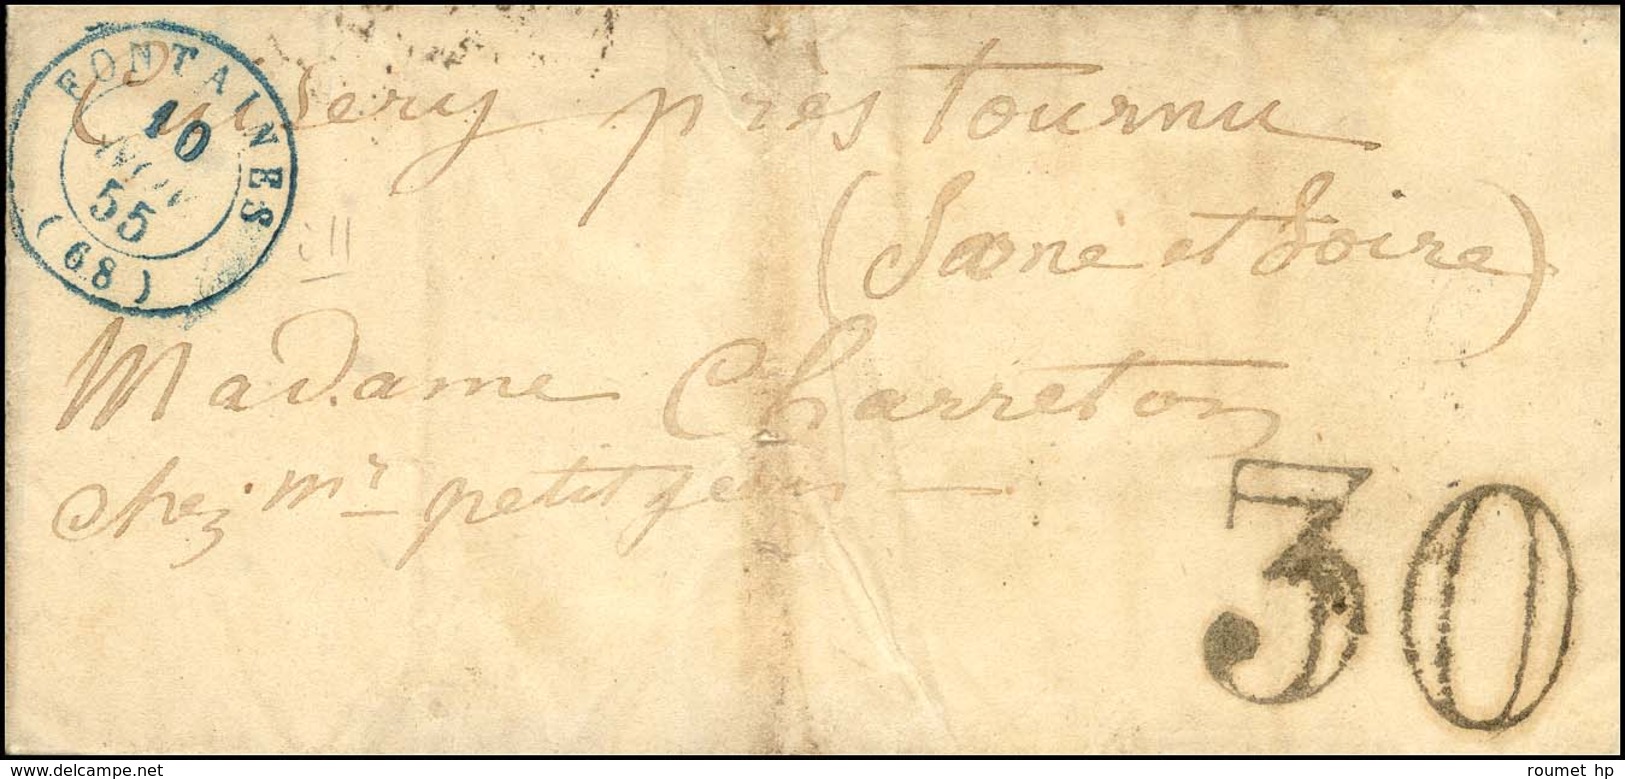 FONTAINES
10
55
(68)
Cuisery près Tournu
(Saone et Loire)
Madame Charreton
chez mr petitjean
30
roumet hp